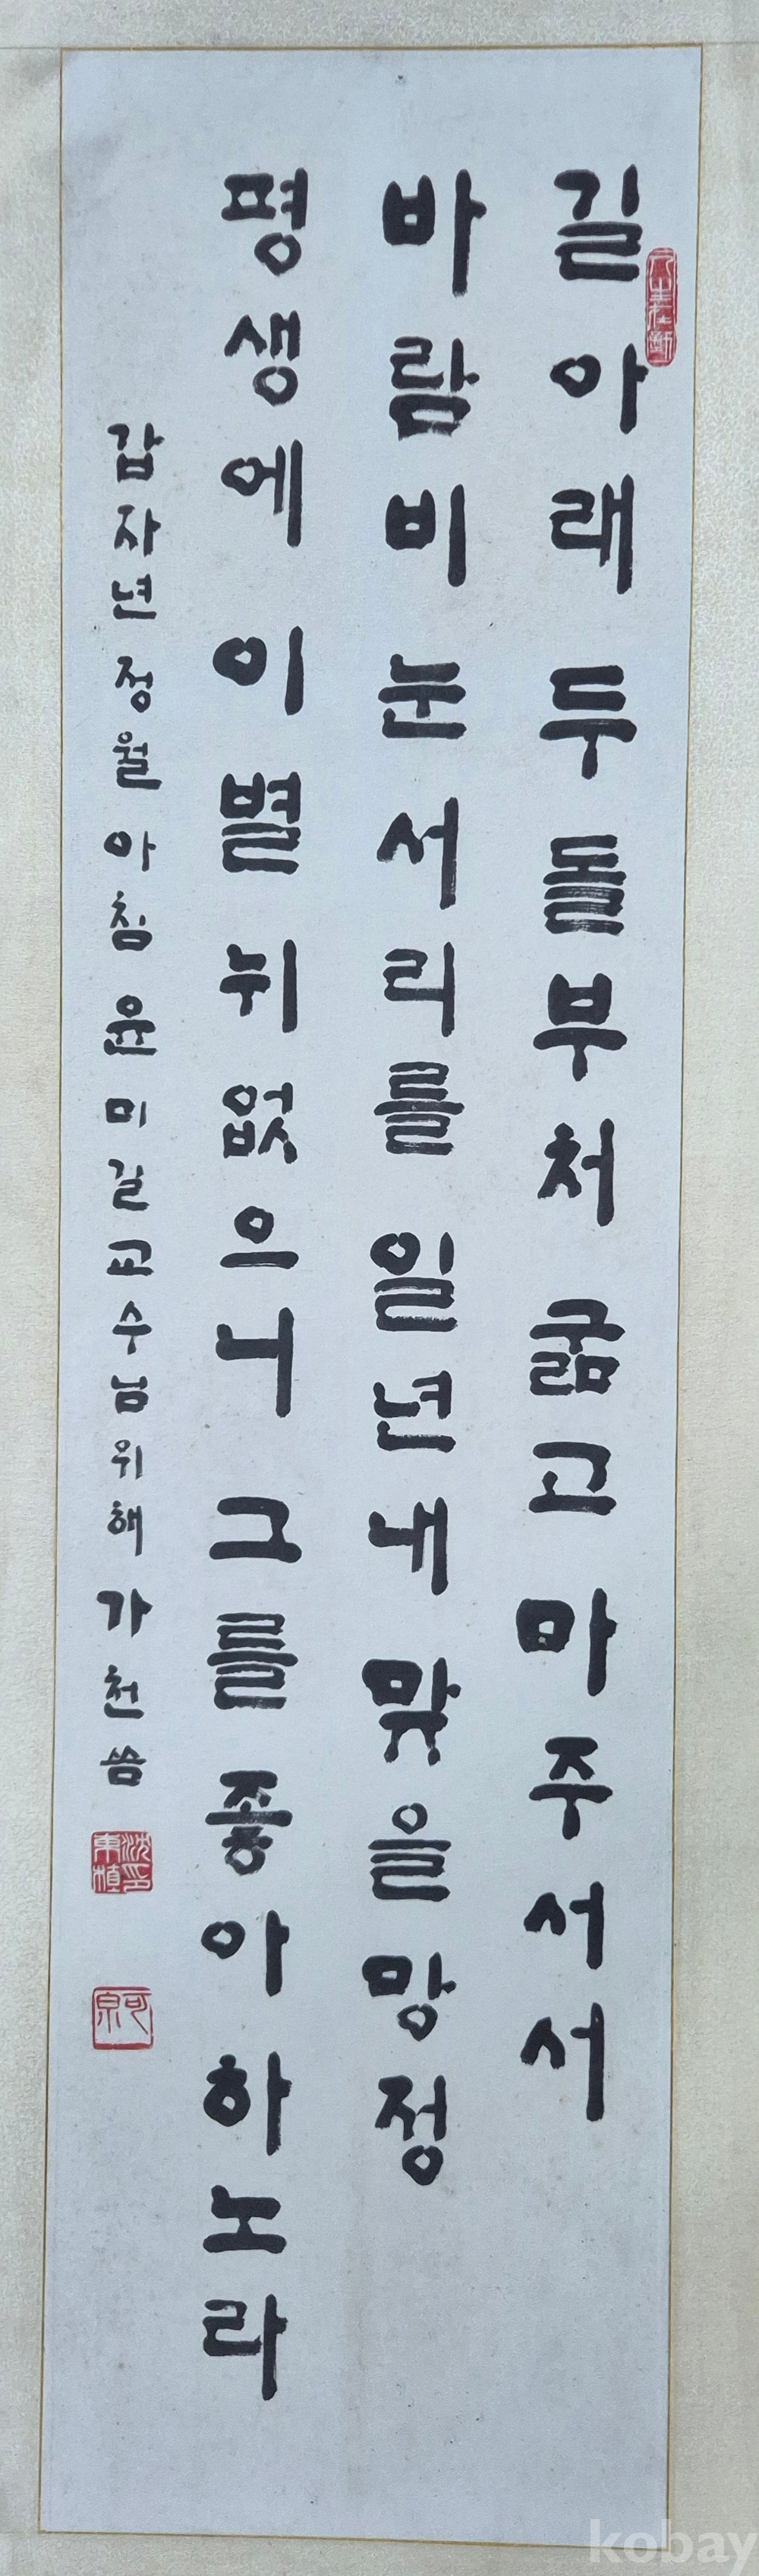 길 아래 두 돌부처 굶고 마주 서서
바람비 눈서리를 일년내 맞을망정
평생에 이별 뉘 없으니 그를 좋아하노라
갑자년 정월 아침 윤미길 교수님 위해 가천 씀
沈東植印
可泉
kobay